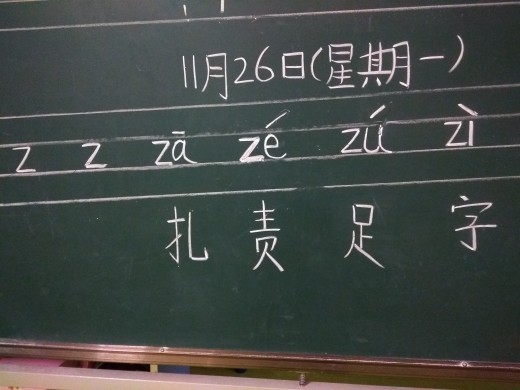 11月26日(星期一)
z z zā zé zú zì
扎 责 足 字